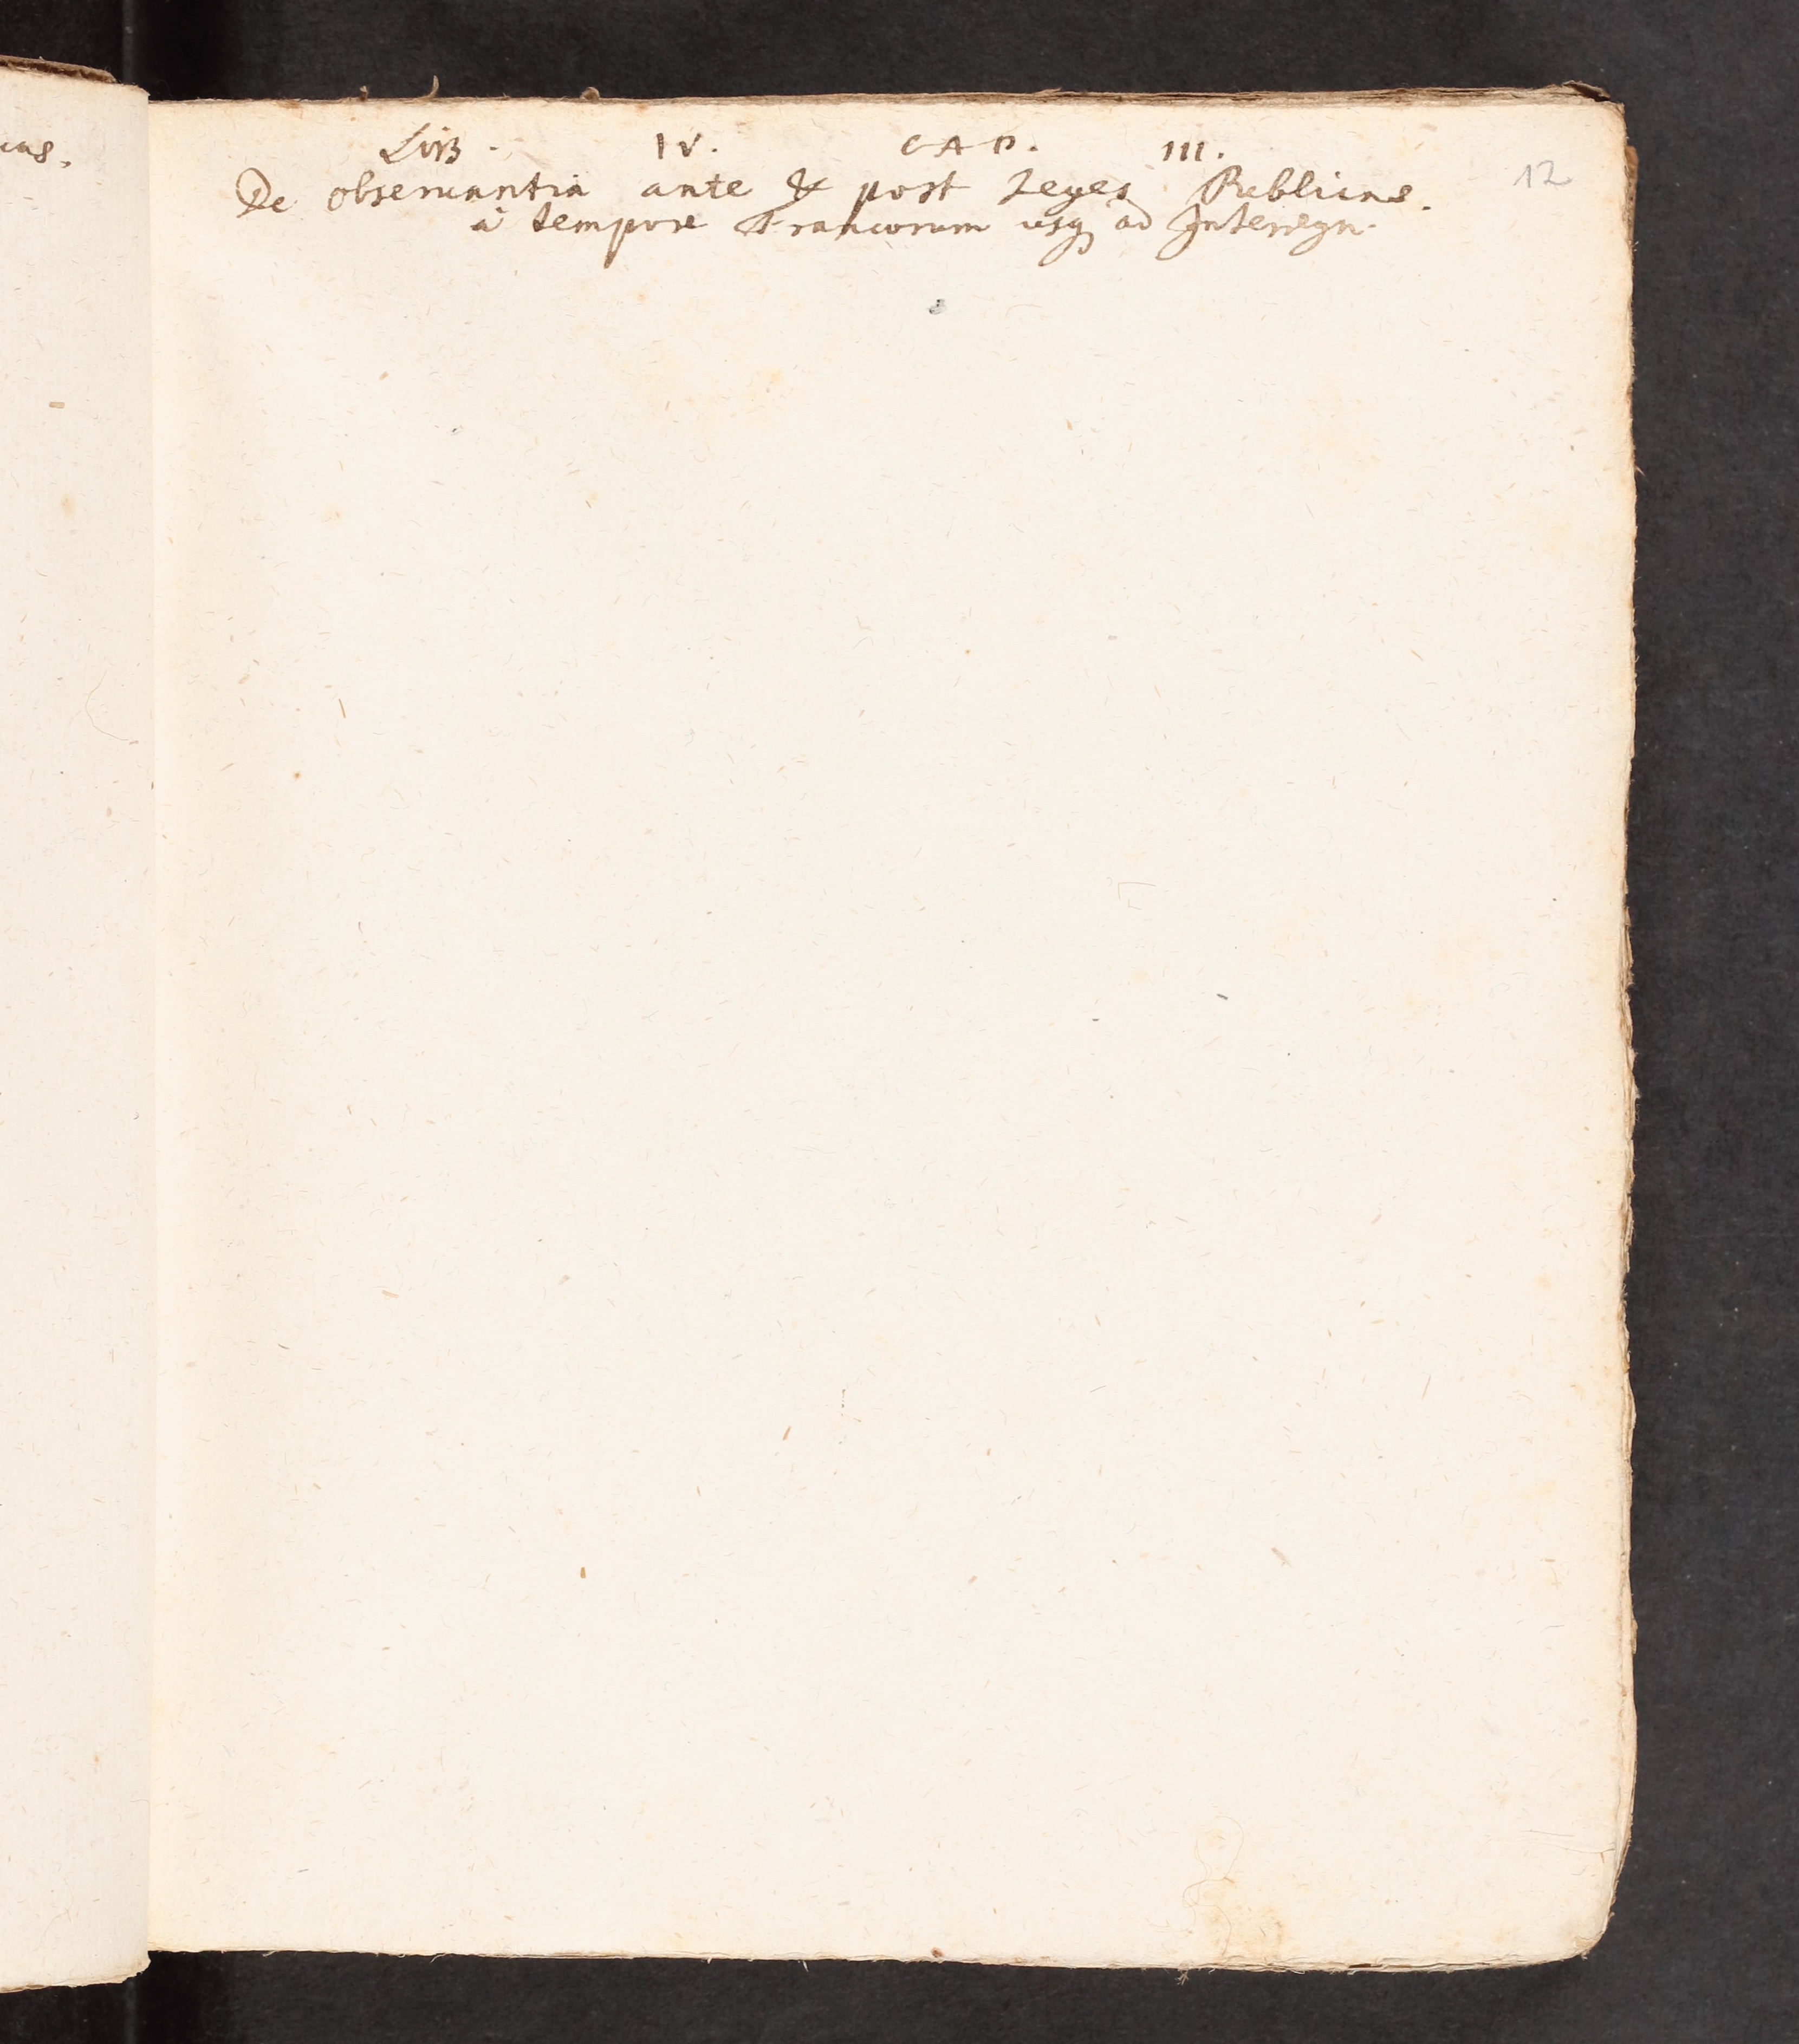 LIB. IV. CAP. III.
De obseruantia ante & post Leges Publicas.
à tempore Francorum usq ad Interregn.
12